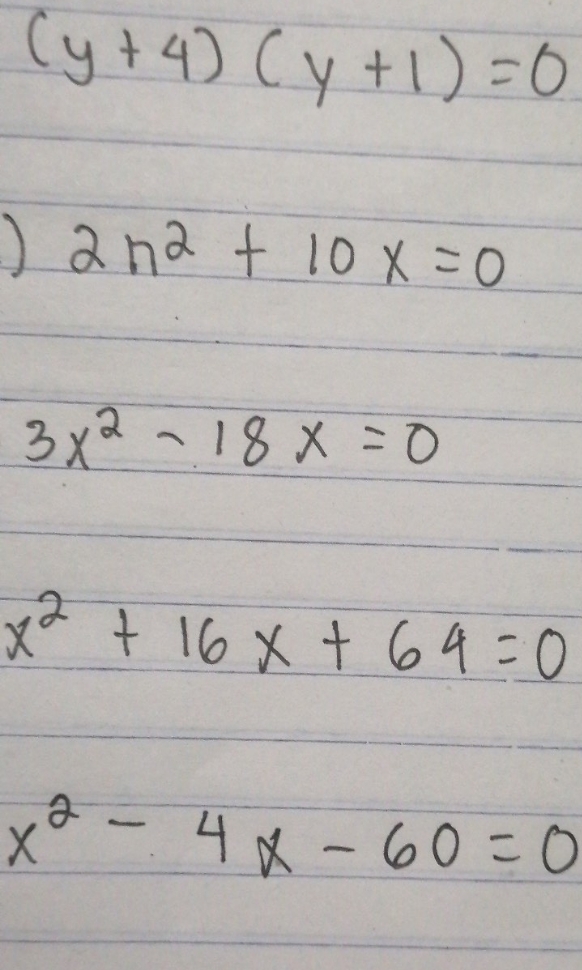 (y + 4) (y + 1) = 0
) 2n² + 10x = 0
3x² - 18x = 0
x² + 16x + 64 = 0
x² - 4x - 60 = 0